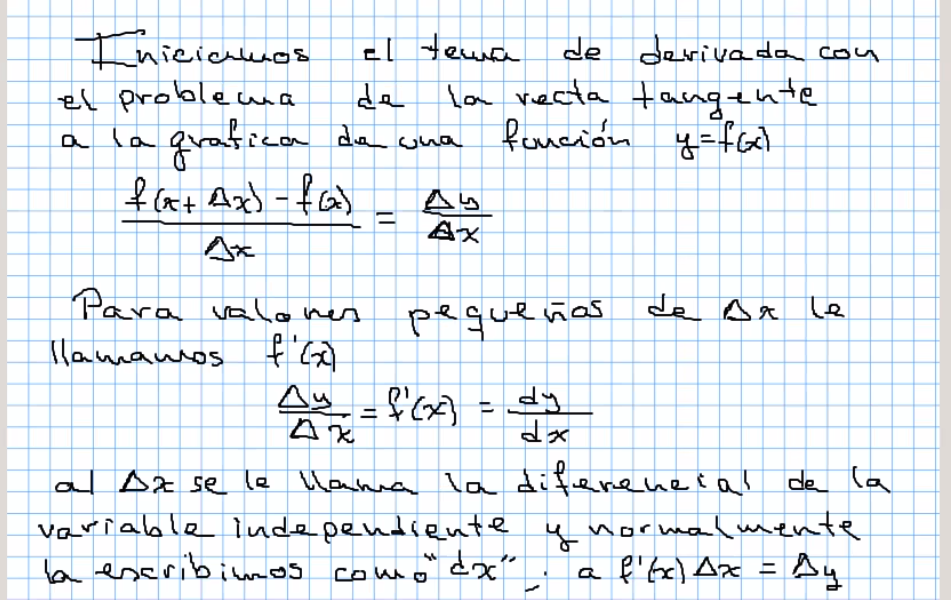 Iniciamos el tema de derivada con
el problema de la recta tangente
a la grafica de una función y=f(x)
f(x+Δx)-f(x) / Δx = Δy / Δx
Para valores pequeños de Δx le
llamamos f'(x)
Δy / Δx = f'(x) = dy / dx
al Δx se le llama la diferencial de la
variable independiente y normalmente
la escribimos como "dx", a f'(x) Δx = Δy